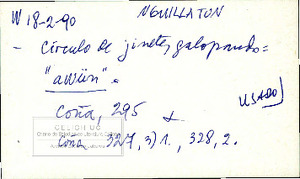 W 18-2-90
NGUILLATUN
- Círculo de jinetes galopando =
"awün".
Coña, 295 &
USADO
CELICH UC
Coña, 327, 3) 1., 328, 2.